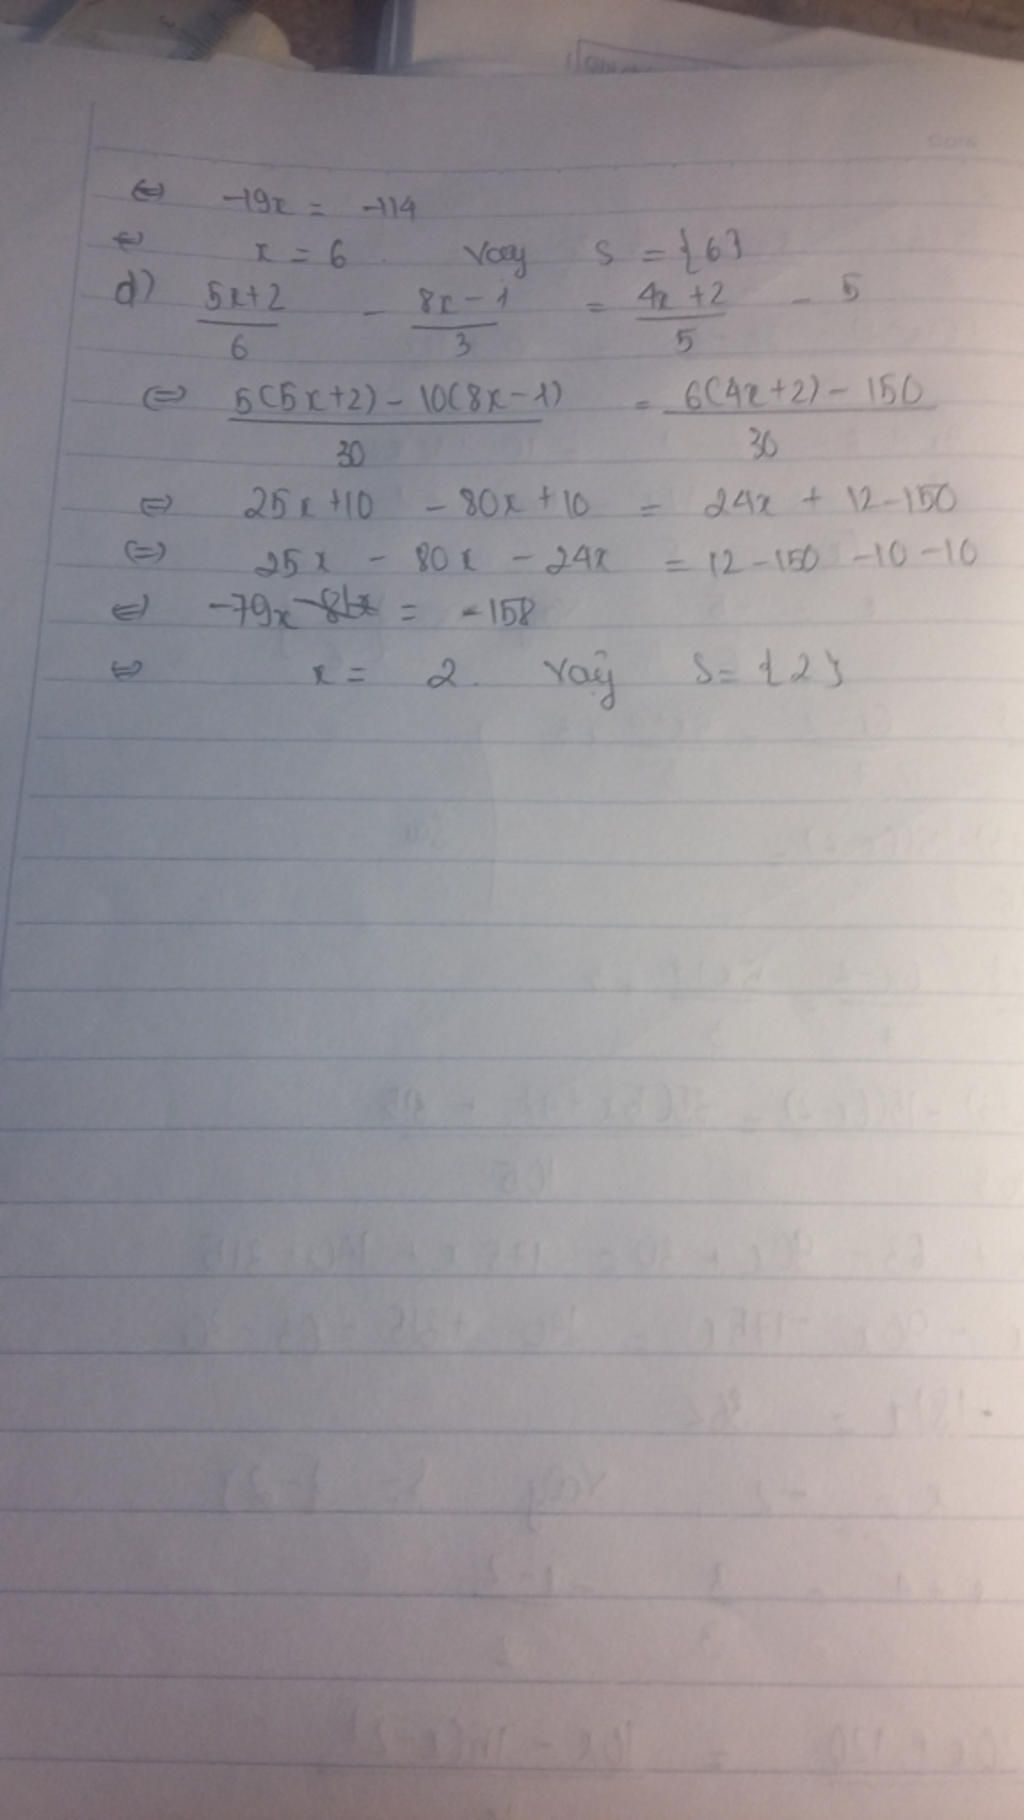 ⇔ -19x = -114
⇔ x = 6. Vậy S = {6}
d) (5x+2)/6 - (8x-1)/3 = (4x+2)/5 - 5
⇔ (5(5x+2) - 10(8x-1))/30 = (6(4x+2) - 150)/30
⇔ 25x+10 - 80x+10 = 24x + 12-150
⇔ 25x - 80x - 24x = 12-150 -10-10
⇔ -79x = -158
⇔ x = 2. Vậy S = {2}